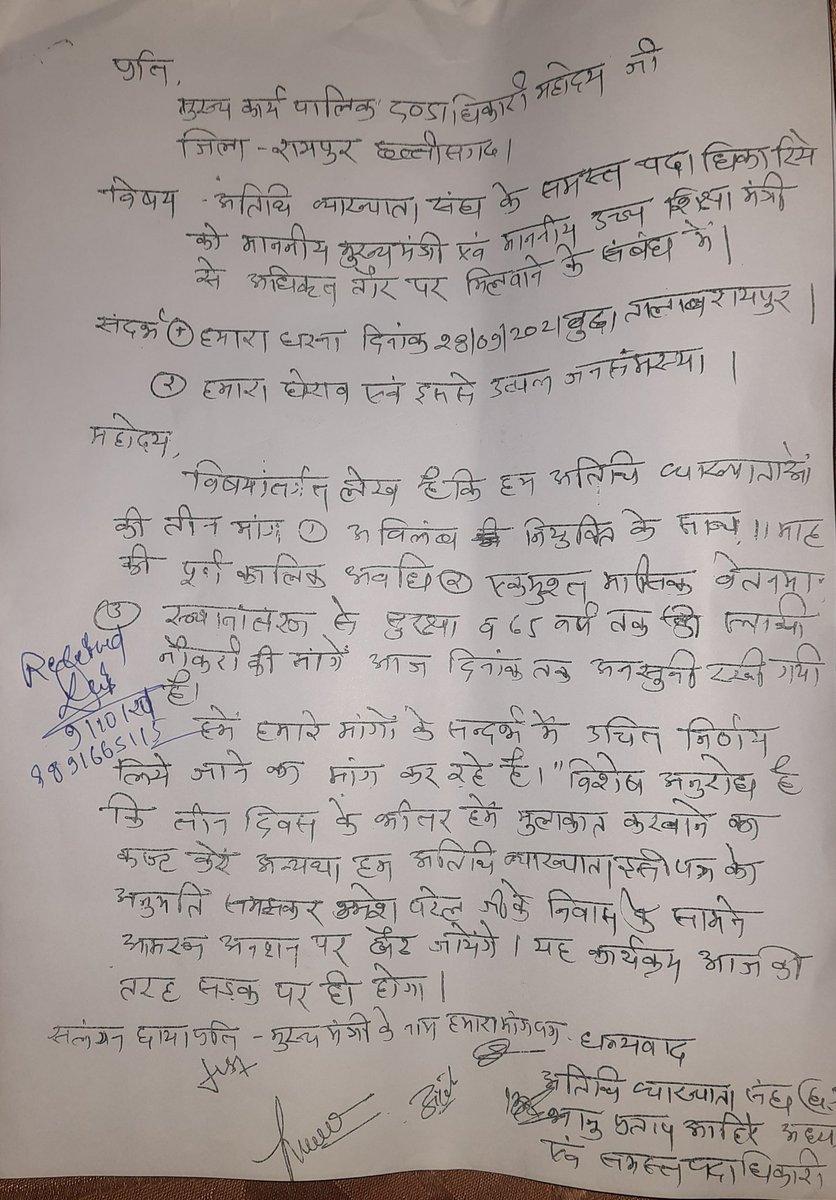 प्रति,
मुख्य कार्य पालिक दण्डाधिकारी महोदय जी
जिला - रायपुर छत्तीसगढ़।
विषय - अतिथि व्याख्याता संघ के समस्त पदाधिकारियो
को माननीय मुख्यमंत्री एवं माननीय उच्च शिक्षा मंत्री
से अधिकृत तौर पर मिलवाने के संबंध में।
संदर्भ ① हमारा धरना दिनांक 28/09/2021 बुढ़ा तालाब रायपुर।
② हमारा घेराव एवं इससे उत्पन्न जनसमस्या।
महोदय,
विषयांतर्गत लेख है कि हम अतिथि व्याख्याताओं
की तीन मांग ① अविलंब नियुक्ति के साथ 11 माह
की पूर्ण कालिक अवधि ② एकमुश्त मासिक वेतनमा
③ स्थानांतरण से सुरक्षा व 65 वर्ष तक स्थायी
नौकरी की मांगें आज दिनांक तक अनसुनी रखी गयी
है।
Received
8891665115
हमें हमारे मांगों के सन्दर्भ में उचित निर्णय
लिये जाने का मांग कर रहे है। "विशेष अनुरोध है
कि तीन दिवस के भीतर हमें मुलाकात करवाने का
कष्ट करें अन्यथा हम अतिथि व्याख्याता इसी पत्र को
अनुमति समझकर उमेश पटेल जी के निवास के सामने
आमरण अनशन पर बैठ जायेंगे। यह कार्यक्रम आज की
तरह सड़क पर ही होगा।
सलंग्न छायाप्रति - मुख्य मंत्री के नाम हमारा मांगपत्र
धन्यवाद
अतिथि व्याख्याता संघ
भानु प्रताप आहिर अध्य
एवं समस्त पदाधिकारी